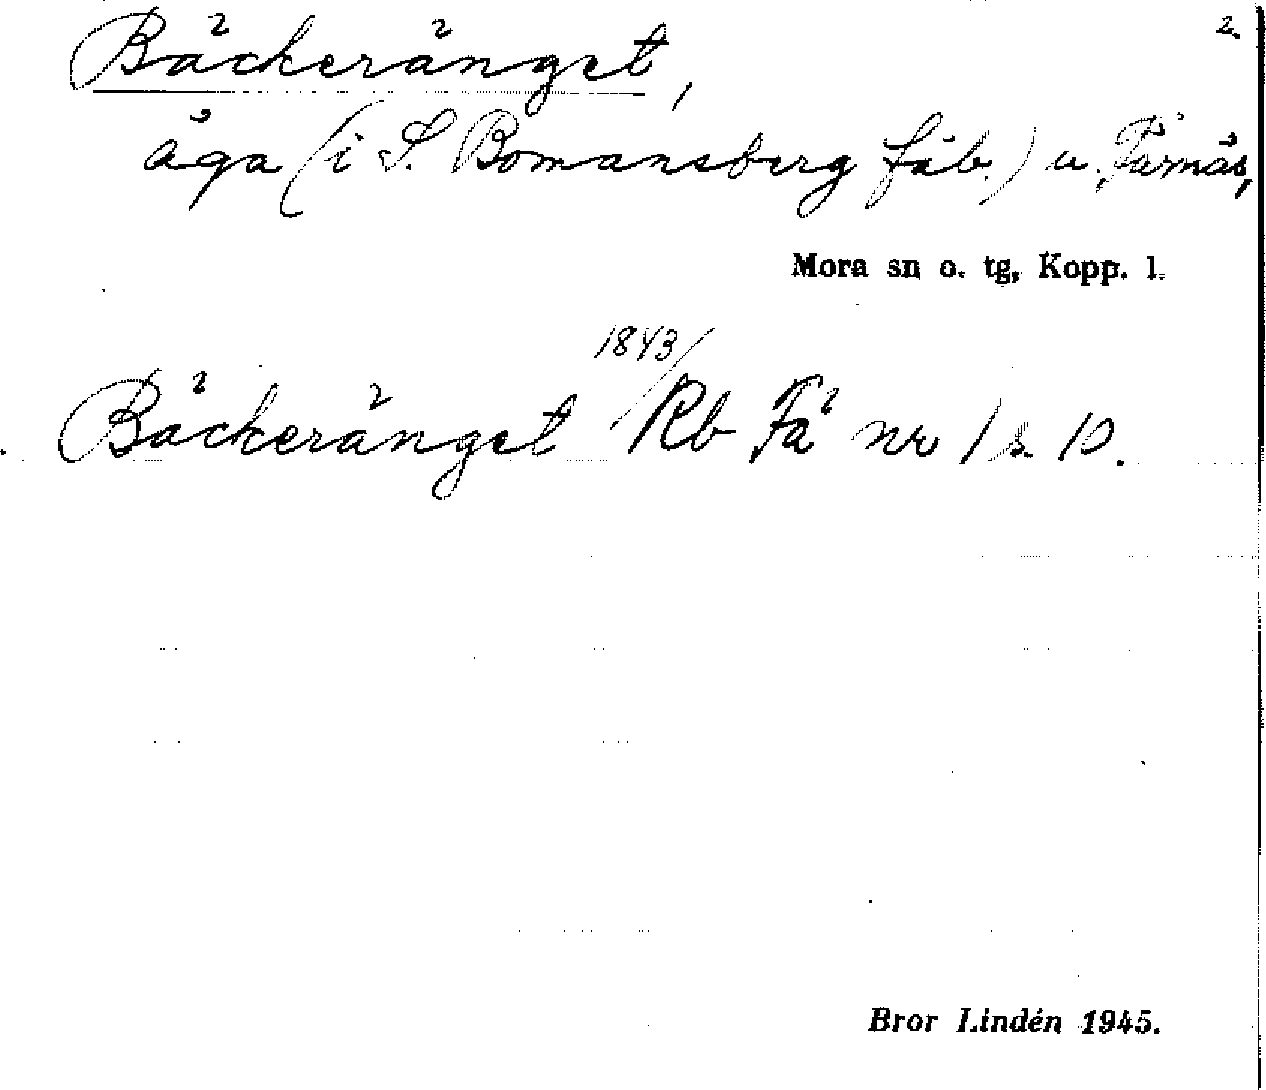 2.
Bäckeränget,
äga (i S. Bomansberg fäb.) u. Färnäs,
Mora sn o. tg, Kopp. l.
1843/
Bäckeränget Rb Fä nr 1 s. 10.
Bror Lindén 1945.